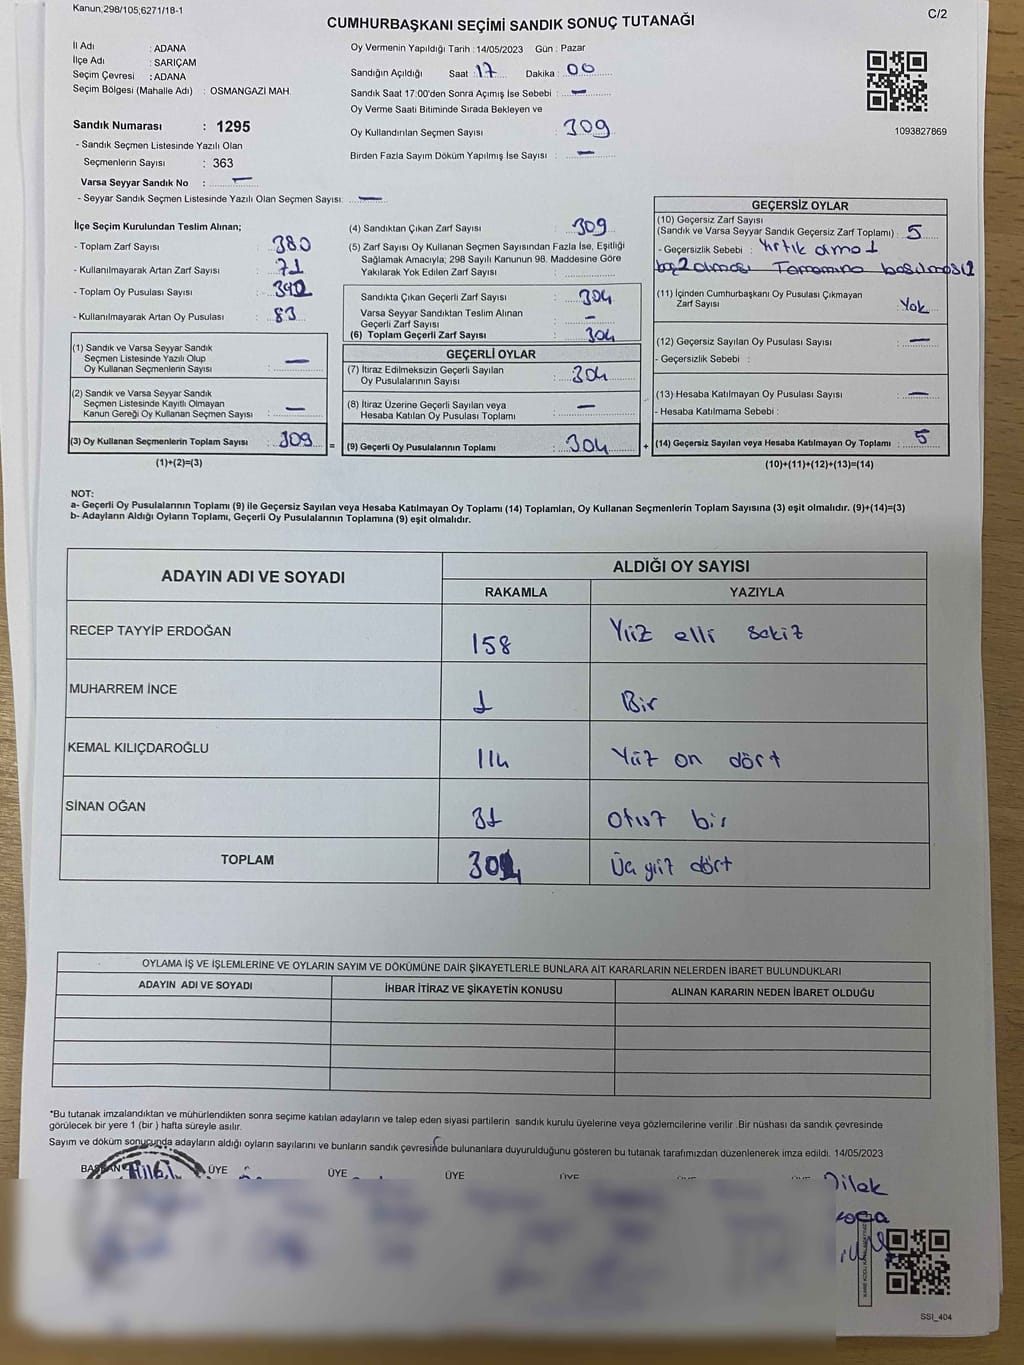 Kanun;298/105;6271/18-1
C/2
CUMHURBAŞKANI SEÇİMİ SANDIK SONUÇ TUTANAĞI
İl Adı : ADANA
İlçe Adı : SARIÇAM
Seçim Çevresi : ADANA
Seçim Bölgesi (Mahalle Adı) : OSMANGAZİ MAH.
Sandık Numarası : 1295
- Sandık Seçmen Listesinde Yazılı Olan
Seçmenlerin Sayısı : 363
Varsa Seyyar Sandık No : —
- Seyyar Sandık Seçmen Listesinde Yazılı Olan Seçmen Sayısı: —
Oy Vermenin Yapıldığı Tarih : 14/05/2023 Gün : Pazar
Sandığın Açıldığı Saat : 17 Dakika : 00
Sandık Saat 17:00'den Sonra Açımış İse Sebebi : —
Oy Verme Saati Bitiminde Sırada Bekleyen ve
Oy Kullandırılan Seçmen Sayısı : 309
Birden Fazla Sayım Döküm Yapılmış İse Sayısı : —
1093827869
İlçe Seçim Kurulundan Teslim Alınan;
- Toplam Zarf Sayısı : 380
- Kullanılmayarak Artan Zarf Sayısı : 71
- Toplam Oy Pusulası Sayısı : 392
- Kullanılmayarak Artan Oy Pusulası : 83
(1) Sandık ve Varsa Seyyar Sandık
Seçmen Listesinde Yazılı Olup
Oy Kullanan Seçmenlerin Sayısı : —
(2) Sandık ve Varsa Seyyar Sandık
Seçmen Listesinde Kayıtlı Olmayan
Kanun Gereği Oy Kullanan Seçmen Sayısı : —
(3) Oy Kullanan Seçmenlerin Toplam Sayısı : 309
(1)+(2)=(3)
(4) Sandıktan Çıkan Zarf Sayısı : 309
(5) Zarf Sayısı Oy Kullanan Seçmen Sayısından Fazla İse, Eşitliği
Sağlamak Amacıyla; 298 Sayılı Kanunun 98. Maddesine Göre
Yakılarak Yok Edilen Zarf Sayısı :
Sandıkta Çıkan Geçerli Zarf Sayısı : 304
Varsa Seyyar Sandıktan Teslim Alınan
Geçerli Zarf Sayısı : —
(6) Toplam Geçerli Zarf Sayısı : 304
GEÇERLİ OYLAR
(7) İtiraz Edilmeksizin Geçerli Sayılan
Oy Pusulalarının Sayısı : 304
(8) İtiraz Üzerine Geçerli Sayılan veya
Hesaba Katılan Oy Pusulası Toplamı : —
= (9) Geçerli Oy Pusulalarının Toplamı : 304
GEÇERSİZ OYLAR
(10) Geçersiz Zarf Sayısı
(Sandık ve Varsa Seyyar Sandık Geçersiz Zarf Toplamı) : 5
- Geçersizlik Sebebi : Yırtık olma 1
boş 2 olması Tamamına basılması 2
(11) İçinden Cumhurbaşkanı Oy Pusulası Çıkmayan
Zarf Sayısı : Yok
(12) Geçersiz Sayılan Oy Pusulası Sayısı : —
- Geçersizlik Sebebi :
(13) Hesaba Katılmayan Oy Pusulası Sayısı : —
- Hesaba Katılmama Sebebi :
+ (14) Geçersiz Sayılan veya Hesaba Katılmayan Oy Toplamı : 5
(10)+(11)+(12)+(13)=(14)
NOT:
a- Geçerli Oy Pusulalarının Toplamı (9) ile Geçersiz Sayılan veya Hesaba Katılmayan Oy Toplamı (14) Toplamları, Oy Kullanan Seçmenlerin Toplam Sayısına (3) eşit olmalıdır. (9)+(14)=(3)
b- Adayların Aldığı Oyların Toplamı, Geçerli Oy Pusulalarının Toplamına (9) eşit olmalıdır.
ADAYIN ADI VE SOYADI ALDIĞI OY SAYISI
RAKAMLA YAZIYLA
RECEP TAYYİP ERDOĞAN 158 Yüz elli sekiz
MUHARREM İNCE 1 Bir
KEMAL KILIÇDAROĞLU 114 Yüz on dört
SİNAN OĞAN 31 Otuz bir
TOPLAM 304 Üç yüz dört
OYLAMA İŞ VE İŞLEMLERİNE VE OYLARIN SAYIM VE DÖKÜMÜNE DAİR ŞİKAYETLERLE BUNLARA AİT KARARLARIN NELERDEN İBARET BULUNDUKLARI
ADAYIN ADI VE SOYADI İHBAR İTİRAZ VE ŞİKAYETİN KONUSU ALINAN KARARIN NEDEN İBARET OLDUĞU
*Bu tutanak imzalandıktan ve mühürlendikten sonra seçime katılan adayların ve talep eden siyasi partilerin sandık kurulu üyelerine veya gözlemcilerine verilir .Bir nüshası da sandık çevresinde
görülecek bir yere 1 (bir ) hafta süreyle asılır.
Sayım ve döküm sonucunda adayların aldığı oyların sayılarını ve bunların sandık çevresinde bulunanlara duyurulduğunu gösteren bu tutanak tarafımızdan düzenlenerek imza edildi. 14/05/2023
BAŞKAN ÜYE ÜYE ÜYE ÜYE
Dilek
SSI_404